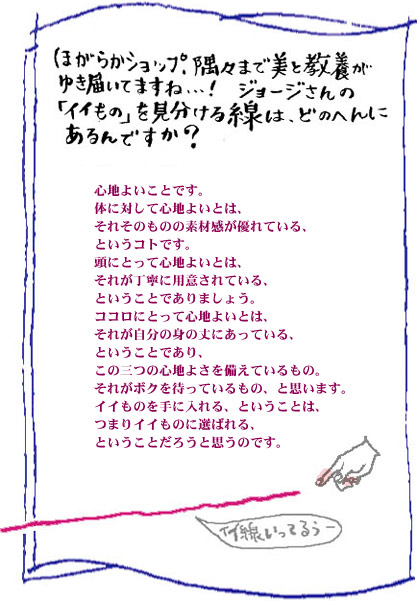 ほがらかショップ、隅々まで美と教養が
ゆき届いてますね…！ ジョージさんの
「イイもの」を見分ける線は、どのへんに
あるんですか？
心地よいことです。
体に対して心地よいとは、
それそのものの素材感が優れている、
というコトです。
頭にとって心地よいとは、
それが丁寧に用意されている、
ということでありましょう。
ココロにとって心地よいとは、
それが自分の身の丈にあっている、
ということであり、
この三つの心地よさを備えているもの。
それがボクを待っているもの、と思います。
イイものを手に入れる、ということは、
つまりイイものに選ばれる、
ということだろうと思うのです。
イイ線いってるぅー